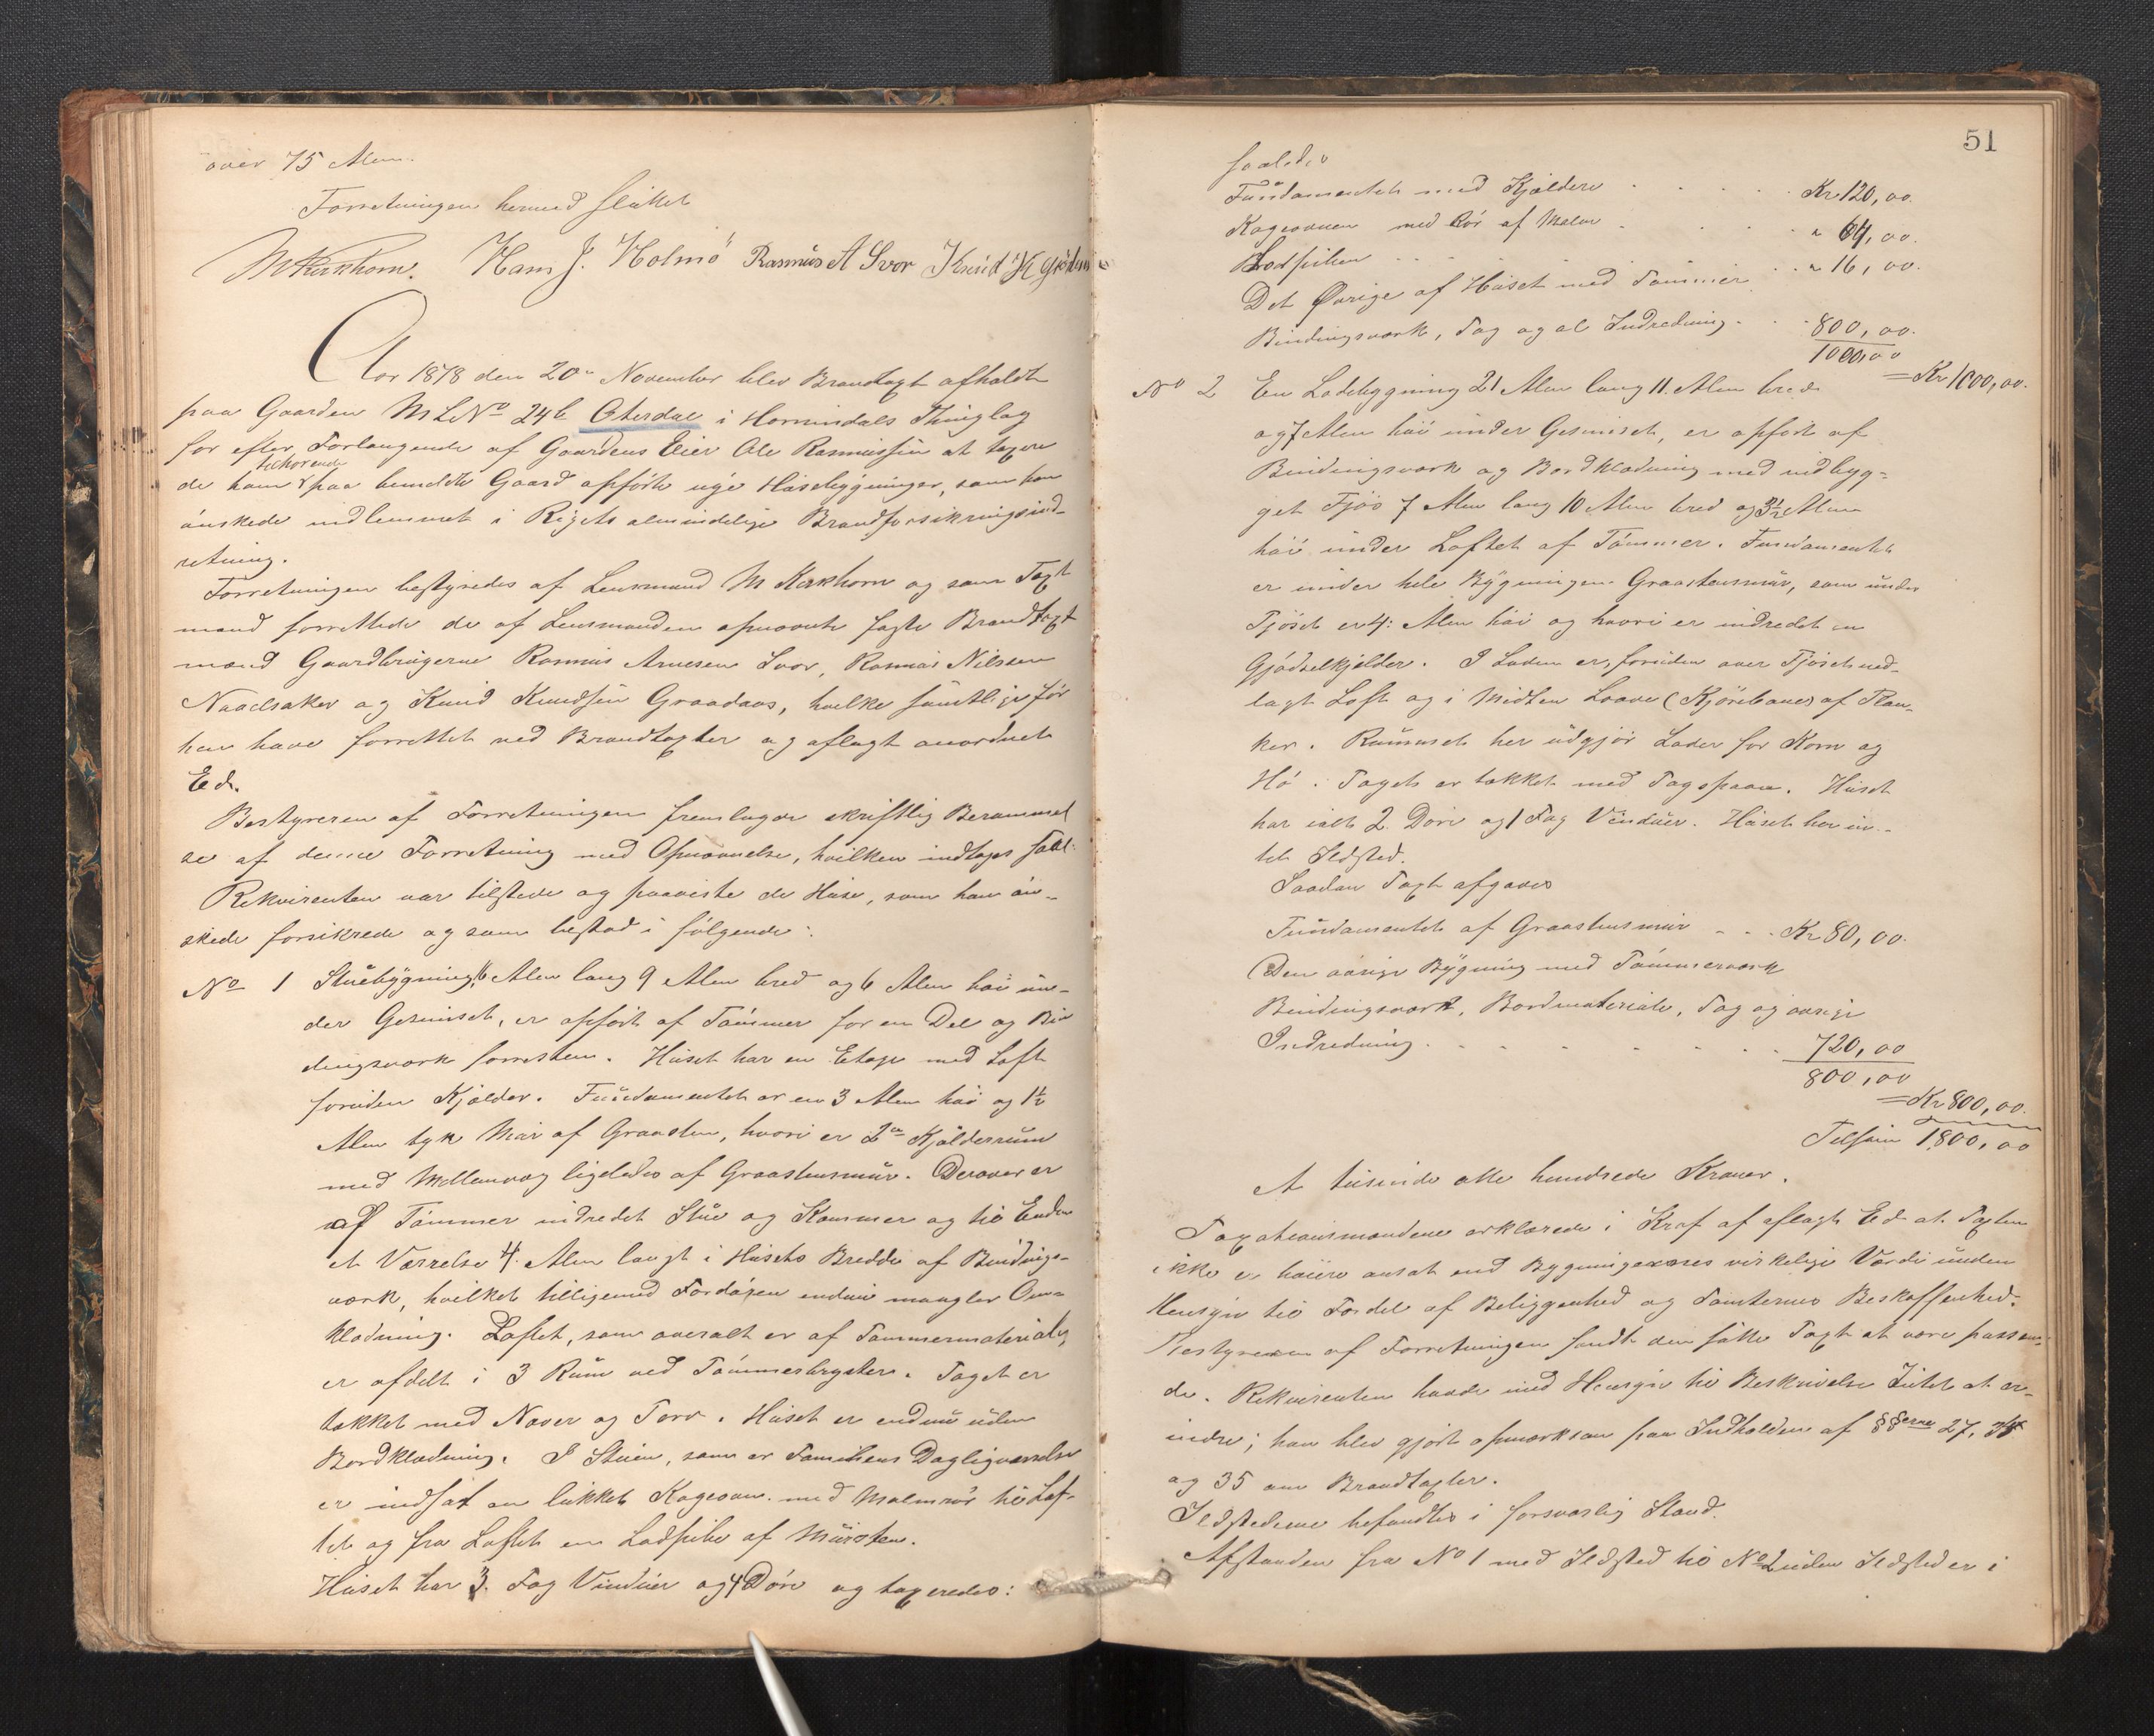 over 75 Alen.
Forretningen hermed sluttet
M Kirkhorn. Hans J. Holmö Rasmus A Svor Knud K
Aar 1878 den 20de November blev Brandtaxt afholdt
paa Gaarden M L No 24b Oterdal i Hornindals Thinglag
for efter Forlangende af Gaardens Eier Ole Rasmussen at taxere
tilhørende
de ham paa bemeldte Gaard opførte nye Husebygninger, som han
ønskede indlemmet i Rigets almindelige Brandforsikringsind-
retning.
Forretningen bestyredes af Lensmand M Kirkhorn og som Taxt
mænd forrettede de af Lensmanden opnævnte faste Brandtaxt
mænd Gaardbrugerne Rasmus Arnesen Svor, Rasmus Nilssen
Naadsaker og Knud Knudsen Graadaas, hvilke samtlige før
hen have forrettet ved Brandtaxter og aflagt anordnet
Ed.
Bestyreren af Forretningen fremlagde skriftlig Berammel
se af denne Forretning med Opnævnelse, hvilken indtages saal:
Rekvirenten var tilstede og paaviste de Huse, som han øn-
skede forsikrede og som bestod i følgende:
No 1 Stuebygning, 16 Alen lang 9 Alen bred og 6 Alen høi un-
der Gesimset, er opført af Tømmer for en Del og Bin
dingsværk forresten. Huset har en Etage med Loft
foruden Kjælder. Fundamentet er en 3 Alen høi og 1½
Alen tyk Mur af Graasten, hvori er 2de Kjælderrum
med Mellemvæg ligeledes af Graastensmur. Derover er
af Tømmer indredet Stue og Kammer og til Enden
et Værrelse 4 Alen langt i Husets Bredde af Bindings-
værk, hvilket tilligemed Fordøren endnu mangler Om-
klædning. Loftet, som overalt er af Tømmermateriale,
er afdelt i 3 Rum ved Tømmerbryster. Taget er
tækket med Næver og Torv. Huset er endnu uden
Bordklædning. I Stuen, som er Familiens Dagligværelse
er indsat en lukket Kogeovn med Malmrør til Lof-
tet og fra Loftet en Ladpibe af Mursten.
Huset har 3. Fag Vinduer og 4 Døre og taxeredes:
51
saaledes
Fundamentet med Kjældere . . . . . Kr 120,00.
Kogeovnen med Rør af Malm . . . . " 64,00.
Ladpiben . . . . . " 16,00.
Det Øvrige af Huset med Tømmer
Bindingsværk, Tag og al Indredning . . . 800,00.
1000,00
= Kr 1000,00.
No 2 En Ladebygning 21 Alen lang 11. Alen bred
og 7 Alen høi under Gesimset, er opført af
Bindingsværk og Bordklædning med indbyg-
get Fjøs 7 Alen lang 10 Alen bred og 3½ Alen
høi under Loftet af Tømmer. Fundamentet
er under hele Bygningen Graastensmur, som under
Fjøset er 4: Alen høi og hvori er indredet en
Gjødselkjelder. I Laden er, foruden over Fjøset ned-
lagt Loft og i Midten Laave (Kjørebane) af Plan-
ker. Rummet her udgjør Lader for Korn og
Hø. Taget er tækket med Tagspaan. Huset
har ialt 2. Døre og 1 Fag Vinduer. Huset har in-
tet Ildsted.
Saadan Taxt afgaves
Fundamentet af Graastensmur . . . Kr 80,00.
Den øvrige Bygning med Tømmerværk
Bindingsværk, Bordmateriale, Tag og øvrige
Indredning . . . . . . . 720,00
800,00
= Kr 800,00.
Tilsam 1800,00
Et tusinde otte hundrede Kroner.
Taxationsmændene erklærede i Kraf af aflagt Ed at Taxten
ikke er høiere ansat end Bygningernes virkelige Værdi uden
Hensyn til Fordel af Beliggenhed og Tomternes Beskaffenhed.
Bestyreren af Forretningen fandt den satte Taxt at være passen-
de. Rekvirenten havde med Hensyn til Beskrivelse Intet at er-
indre; han blev gjort opmærksom paa Indholden af §§erne 27, 34
og 35 om Brandtaxter.
Ildstederne befandtes i forsvarlig Stand.
Afstanden fra No 1 med Ildsted til No 2 uden Ildsted er i